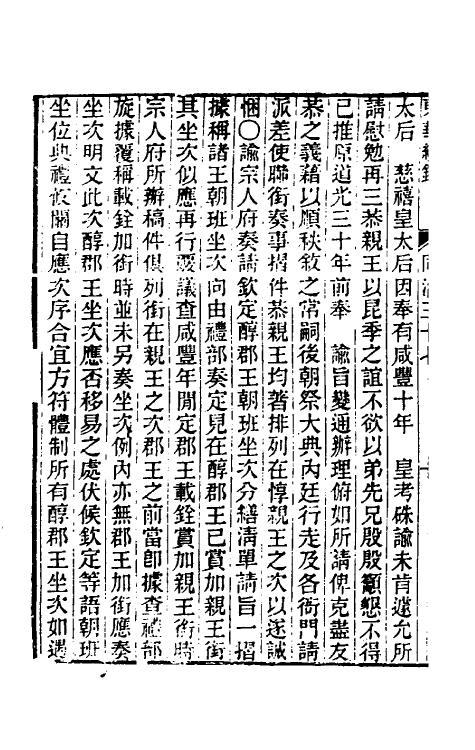 太后　慈禧皇太后因奉有咸豐十年　皇考硃諭未肯遽允所
請慰勉再三恭親王以昆季之誼不欲以弟先兄殷殷籲懇不得
已推原道光三十年前奉　諭旨變通辦理俯如所請俾克盡友
恭之義藉以順秩敘之常嗣後朝祭大典內廷行走及各衙門請
派差使聯銜奏事摺件恭親王均著排列在惇親王之次以遂誠
悃○諭宗人府奏請欽定醇郡王朝班坐次分繕清單請旨一摺
據稱諸王朝班坐次向由禮部奏定見在醇郡王已賞加親王銜
其坐次似應再行覆議查咸豐年閒定郡王載銓賞加親王銜時
宗人府所辦稿件俱列銜在親王之次郡王之前當卽據查禮部
旋據覆稱載銓加銜時並未另奏坐次例內亦無郡王加銜應奏
坐次明文此次醇郡王坐次應否移易之處伏候欽定等語朝班
坐位典禮攸關自應次序合宜方符體制所有醇郡王坐次如遇